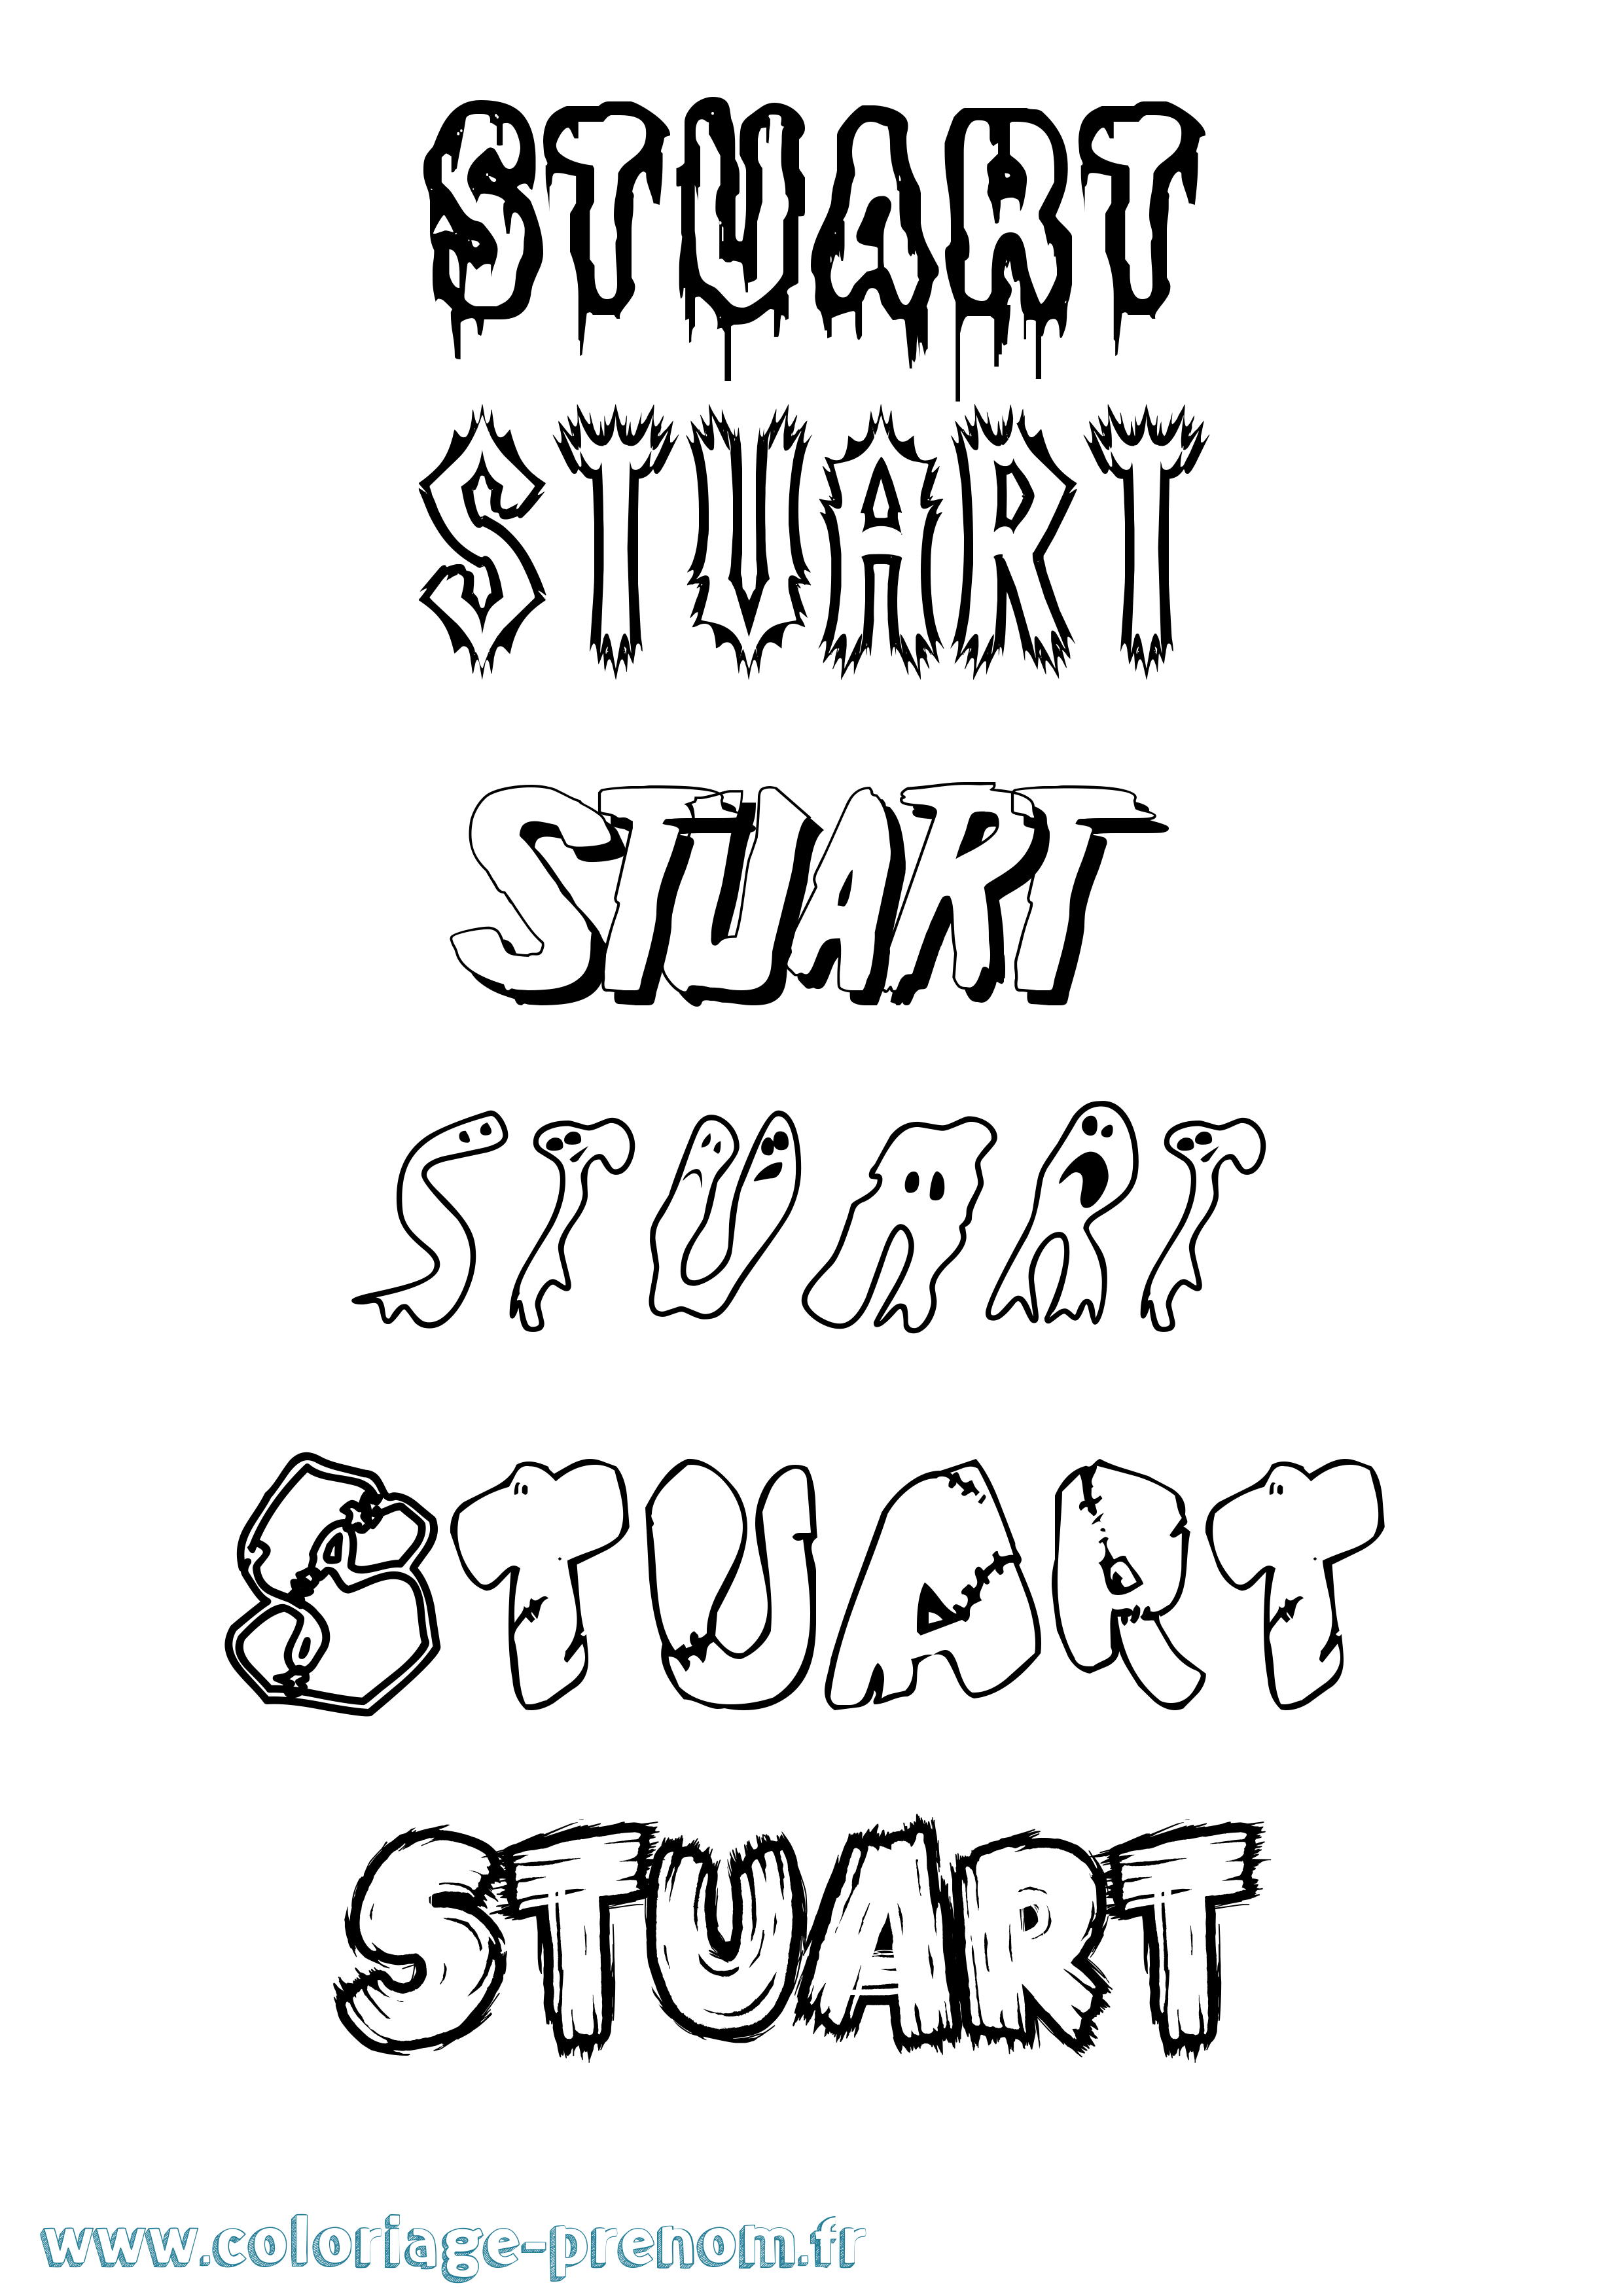 STUART
STUART
STUART
STUART
STUART
STUART
www.coloriage-prenom.fr